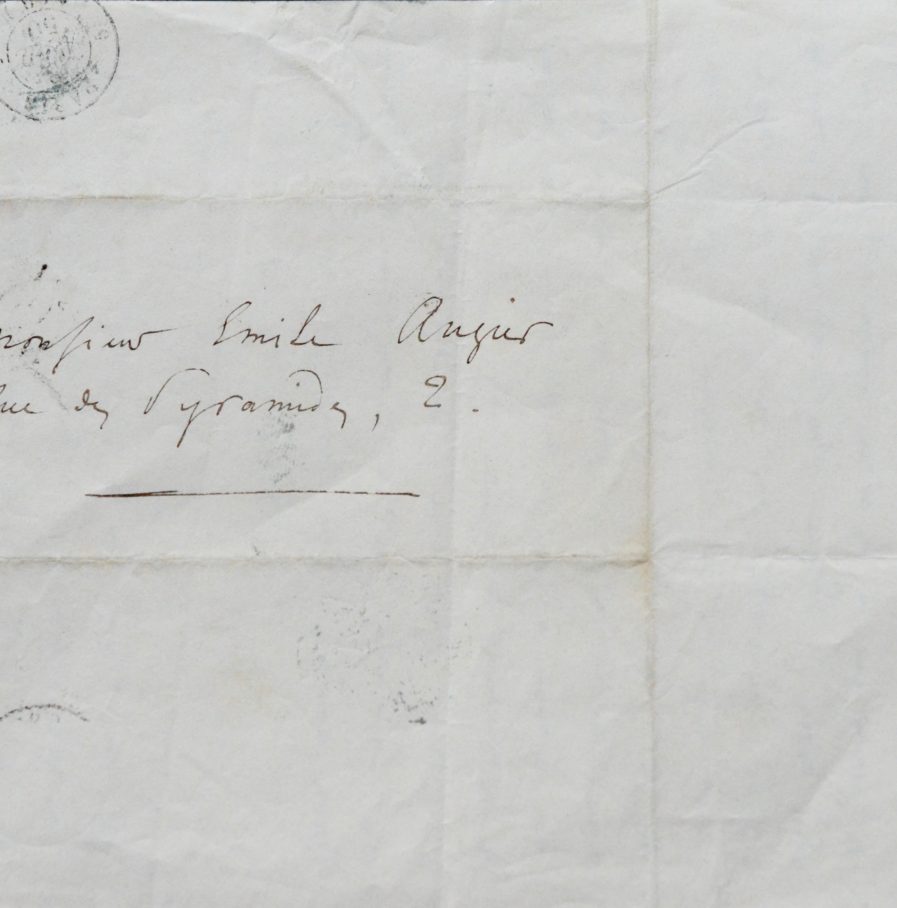 Monsieur Emile Augier
Rue des Pyramides, 2.